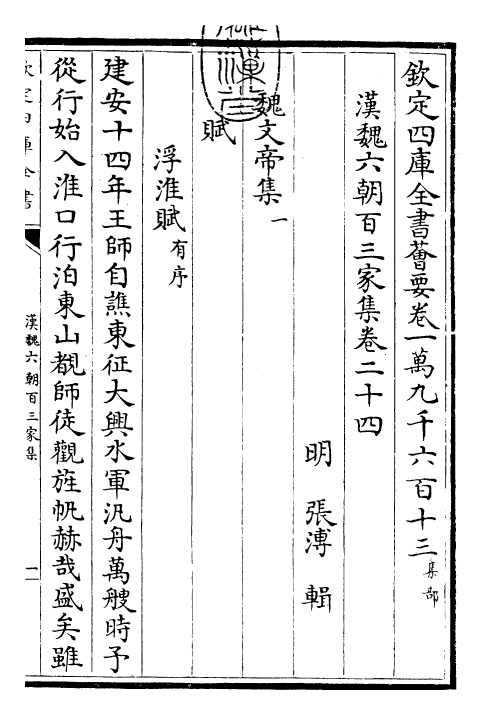 欽定四庫全書薈要卷一萬九千六百十三集部
漢魏六朝百三家集卷二十四
明 張溥 輯
魏文帝集一
賦
浮淮賦有序
建安十四年王師自譙東征大興水軍汎舟萬艘時予
從行始入淮口行泊東山覩師徒觀旌帆赫哉盛矣雖
欽定四庫全書
漢魏六朝百三家集
一